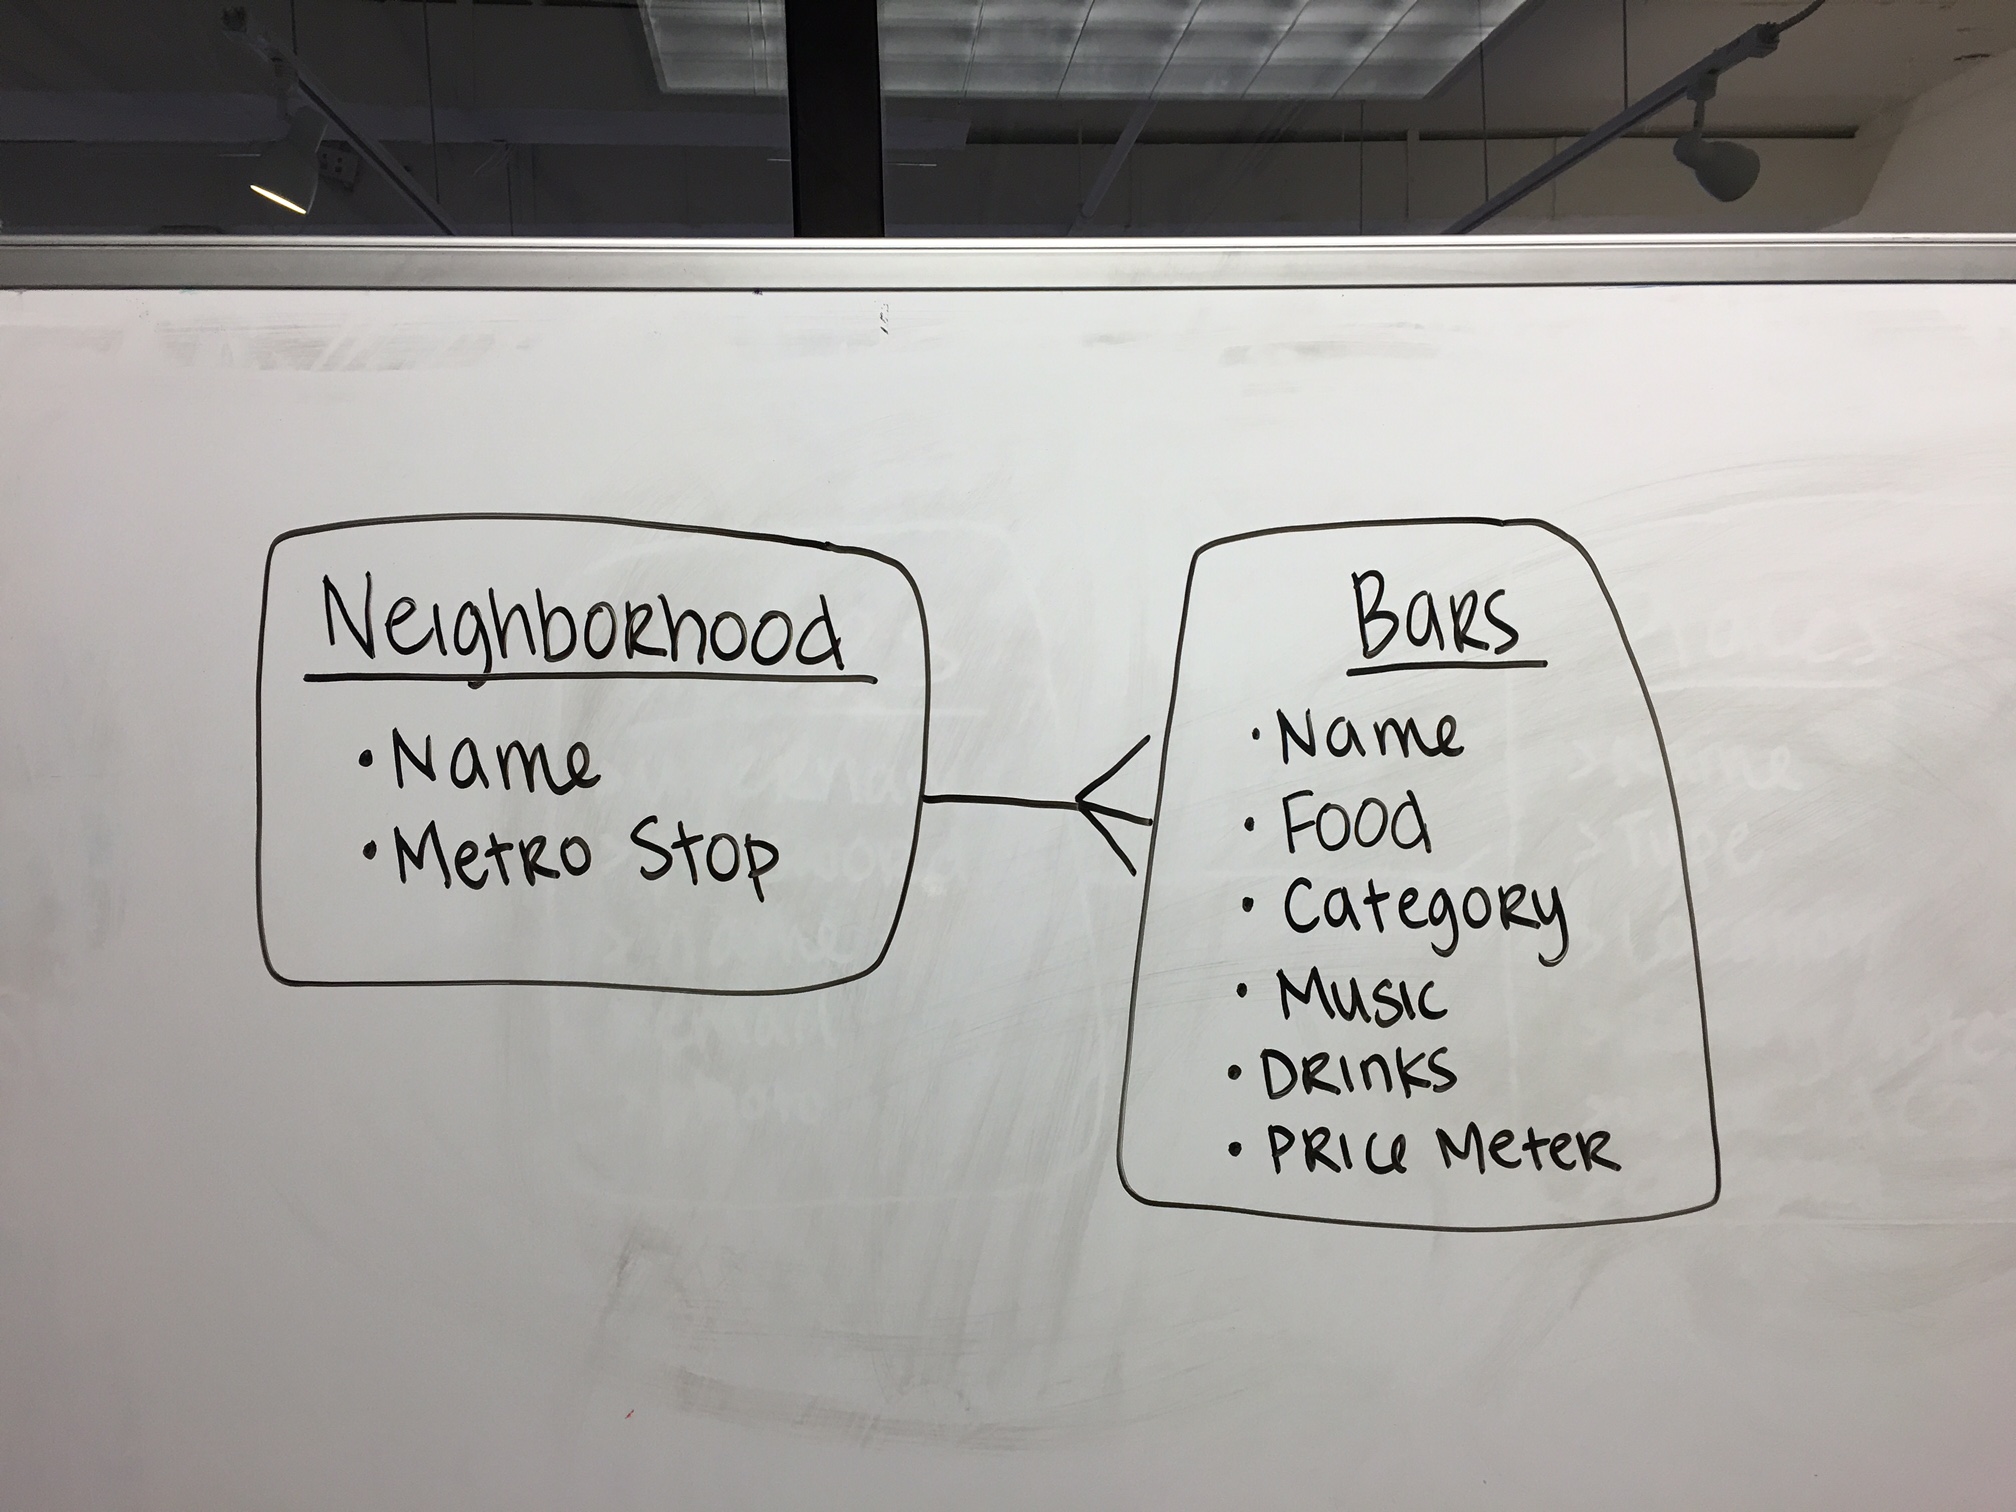 Neighborhood
• Name
• Metro Stop
Bars
• Name
• Food
• Category
• Music
• Drinks
• Price Meter